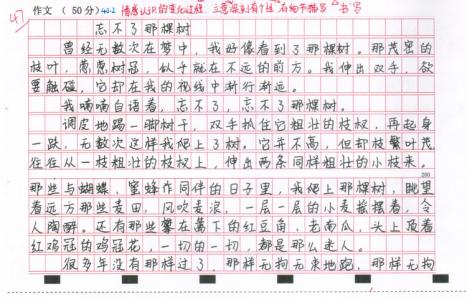 47 作文(50分) 42.2 情感认识的变化过程 立意深刻有个性 有细节描写 书写
忘不了那棵树
曾经无数次在梦中，我好像看到了那棵树。那茂密的
枝叶，葱葱树冠，似乎就在不远的前方。我伸出双手，欲
要触碰，它却在我的视线中渐行渐远。
我喃喃自语着，忘不了，忘不了那棵树。
调皮地踢一脚树干，双手扒住它粗壮的枝杈，再起身
一跃，无数次这样我爬上了树。它并不高，但却枝繁叶茂
往往从一枝粗壮的枝杈上，伸出两条同样粗壮的小枝来。
200
那些与蝴蝶、蜜蜂作同伴的日子里，我爬上那棵树，眺望
着远方那些麦田，风吹麦浪，一层一层的小麦摇摆着，令
人陶醉。还有那些攀在篱下的红豆角、老南瓜，头上顶着
红鸡冠的鸡冠花，一切的一切，都是那么迷人。
很多年没有那样过了，那样无拘无束地跑，那样无拘